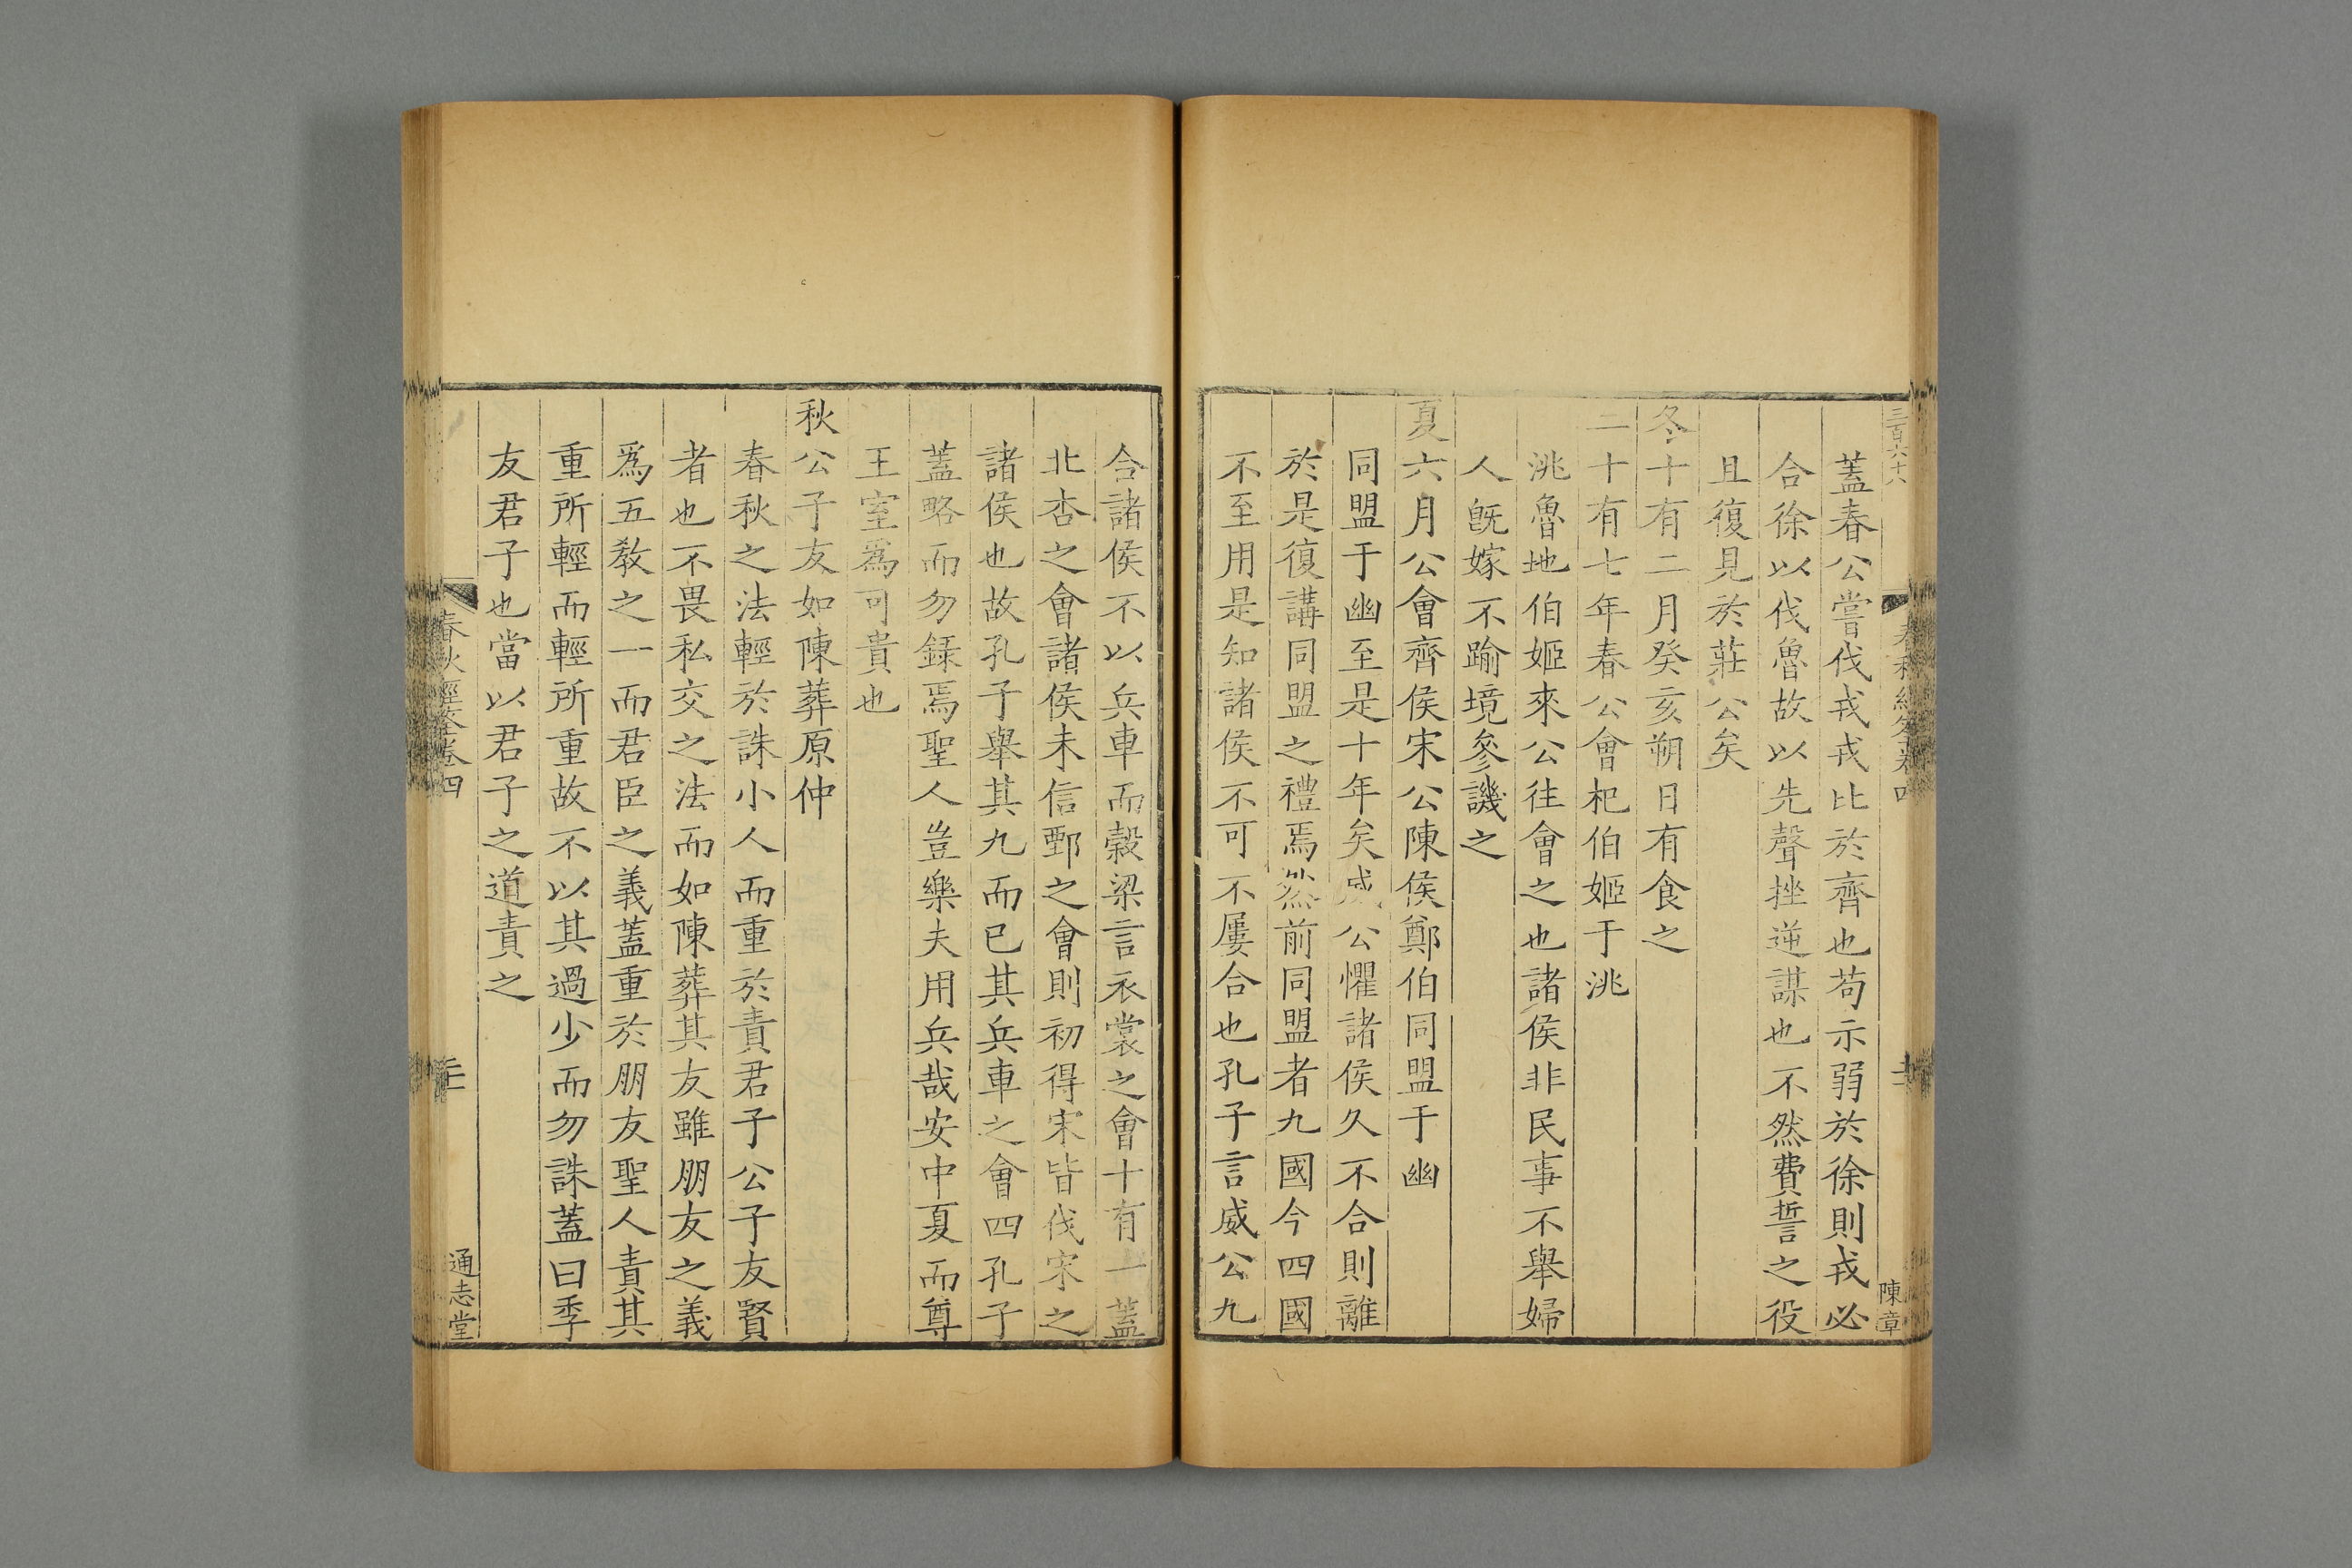 三百六十八
陳章
蓋春公嘗伐戎戎比於齊也苟示弱於徐則戎必
合徐以伐魯故以先聲挫逆謀也不然費誓之役
且復見於莊公矣
冬十有二月癸亥朔日有食之
二十有七年春公會杞伯姬于洮
洮魯地伯姬來公往會之也諸侯非民事不舉婦
人旣嫁不踰境參譏之
夏六月公會齊侯宋公陳侯鄭伯同盟于幽
同盟于幽至是十年矣威公懼諸侯久不合則離
於是復講同盟之禮焉然前同盟者九國今四國
不至用是知諸侯不可不屢合也孔子言威公九
合諸侯不以兵車而榖梁言衣裳之會十有一蓋
北杏之會諸侯未信鄄之會則初得宋皆伐宋之
諸侯也故孔子舉其九而已其兵車之會四孔子
蓋略而勿錄焉聖人豈樂夫用兵哉安中夏而尊
王室爲可貴也
秋公子友如陳葬原仲
春秋之法輕於誅小人而重於責君子公子友賢
者也不畏私交之法而如陳葬其友雖朋友之義
爲五教之一而君臣之義蓋重於朋友聖人責其
重所輕而輕所重故不以其過少而勿誅蓋曰季
友君子也當以君子之道責之
春秋經筌卷四
通志堂